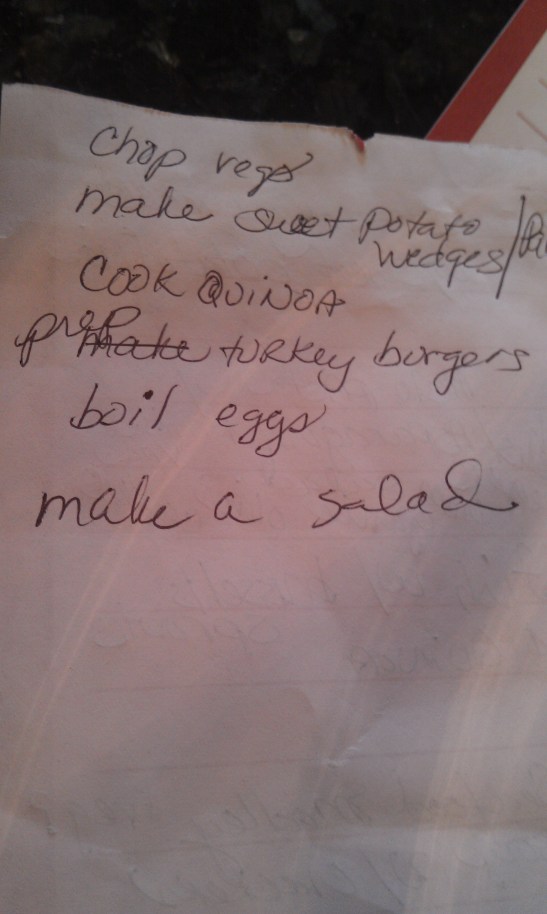 Chop vegs
make sweet potato
wedges/
COOK QUINOA
prep make turkey burgers
boil eggs
make a salad